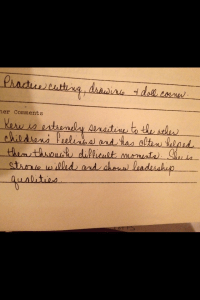 Practice cutting, drawing & doll corner
her Comments
Keri is extremely sensitive to the other
children's feelings and has often helped
them through difficult moments. She is
strong willed and shows leadership
qualities.